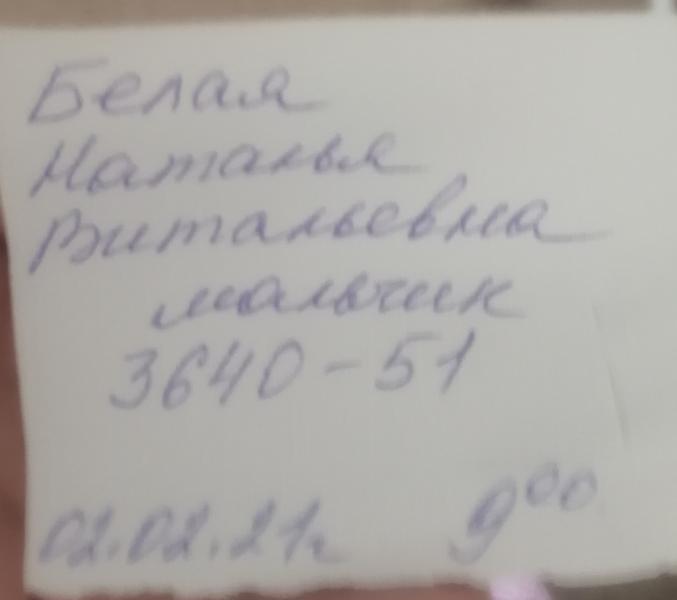 Белая
Наталья
Витальевна
мальчик
3640-51
02.02.21г 9⁰⁰